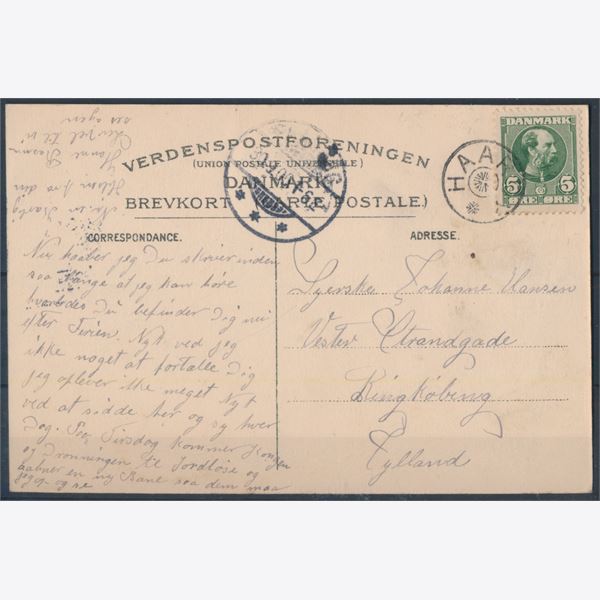 VERDENSPOSTFORENINGEN
(UNION POSTALE UNIVERSELLE)
DANMARK
BREVKORT (CARTE POSTALE.)
CORRESPONDANCE.
ADRESSE.
DANMARK
5 5
ØRE ØRE
HAA
Nu haaber jeg Du skriver inden
saa længe at jeg kan høre
hvordan Du befinder Dig nu
efter Ferien. Nyt ved jeg
ikke noget at fortælle Dig
jeg oplever ikke meget Nyt
ved at sidde her og sy hver
Dag. Paa Tirsdag kommer Kongen
og Dronningen til Jordløse og
aabner en ny Bane saa dem maa
jeg op og se
Hilsen fra din
Hanne
Levvel til vi
ses igen
Syerske Johanne Hansen
Vester Strandgade
Ringkøbing
Jylland